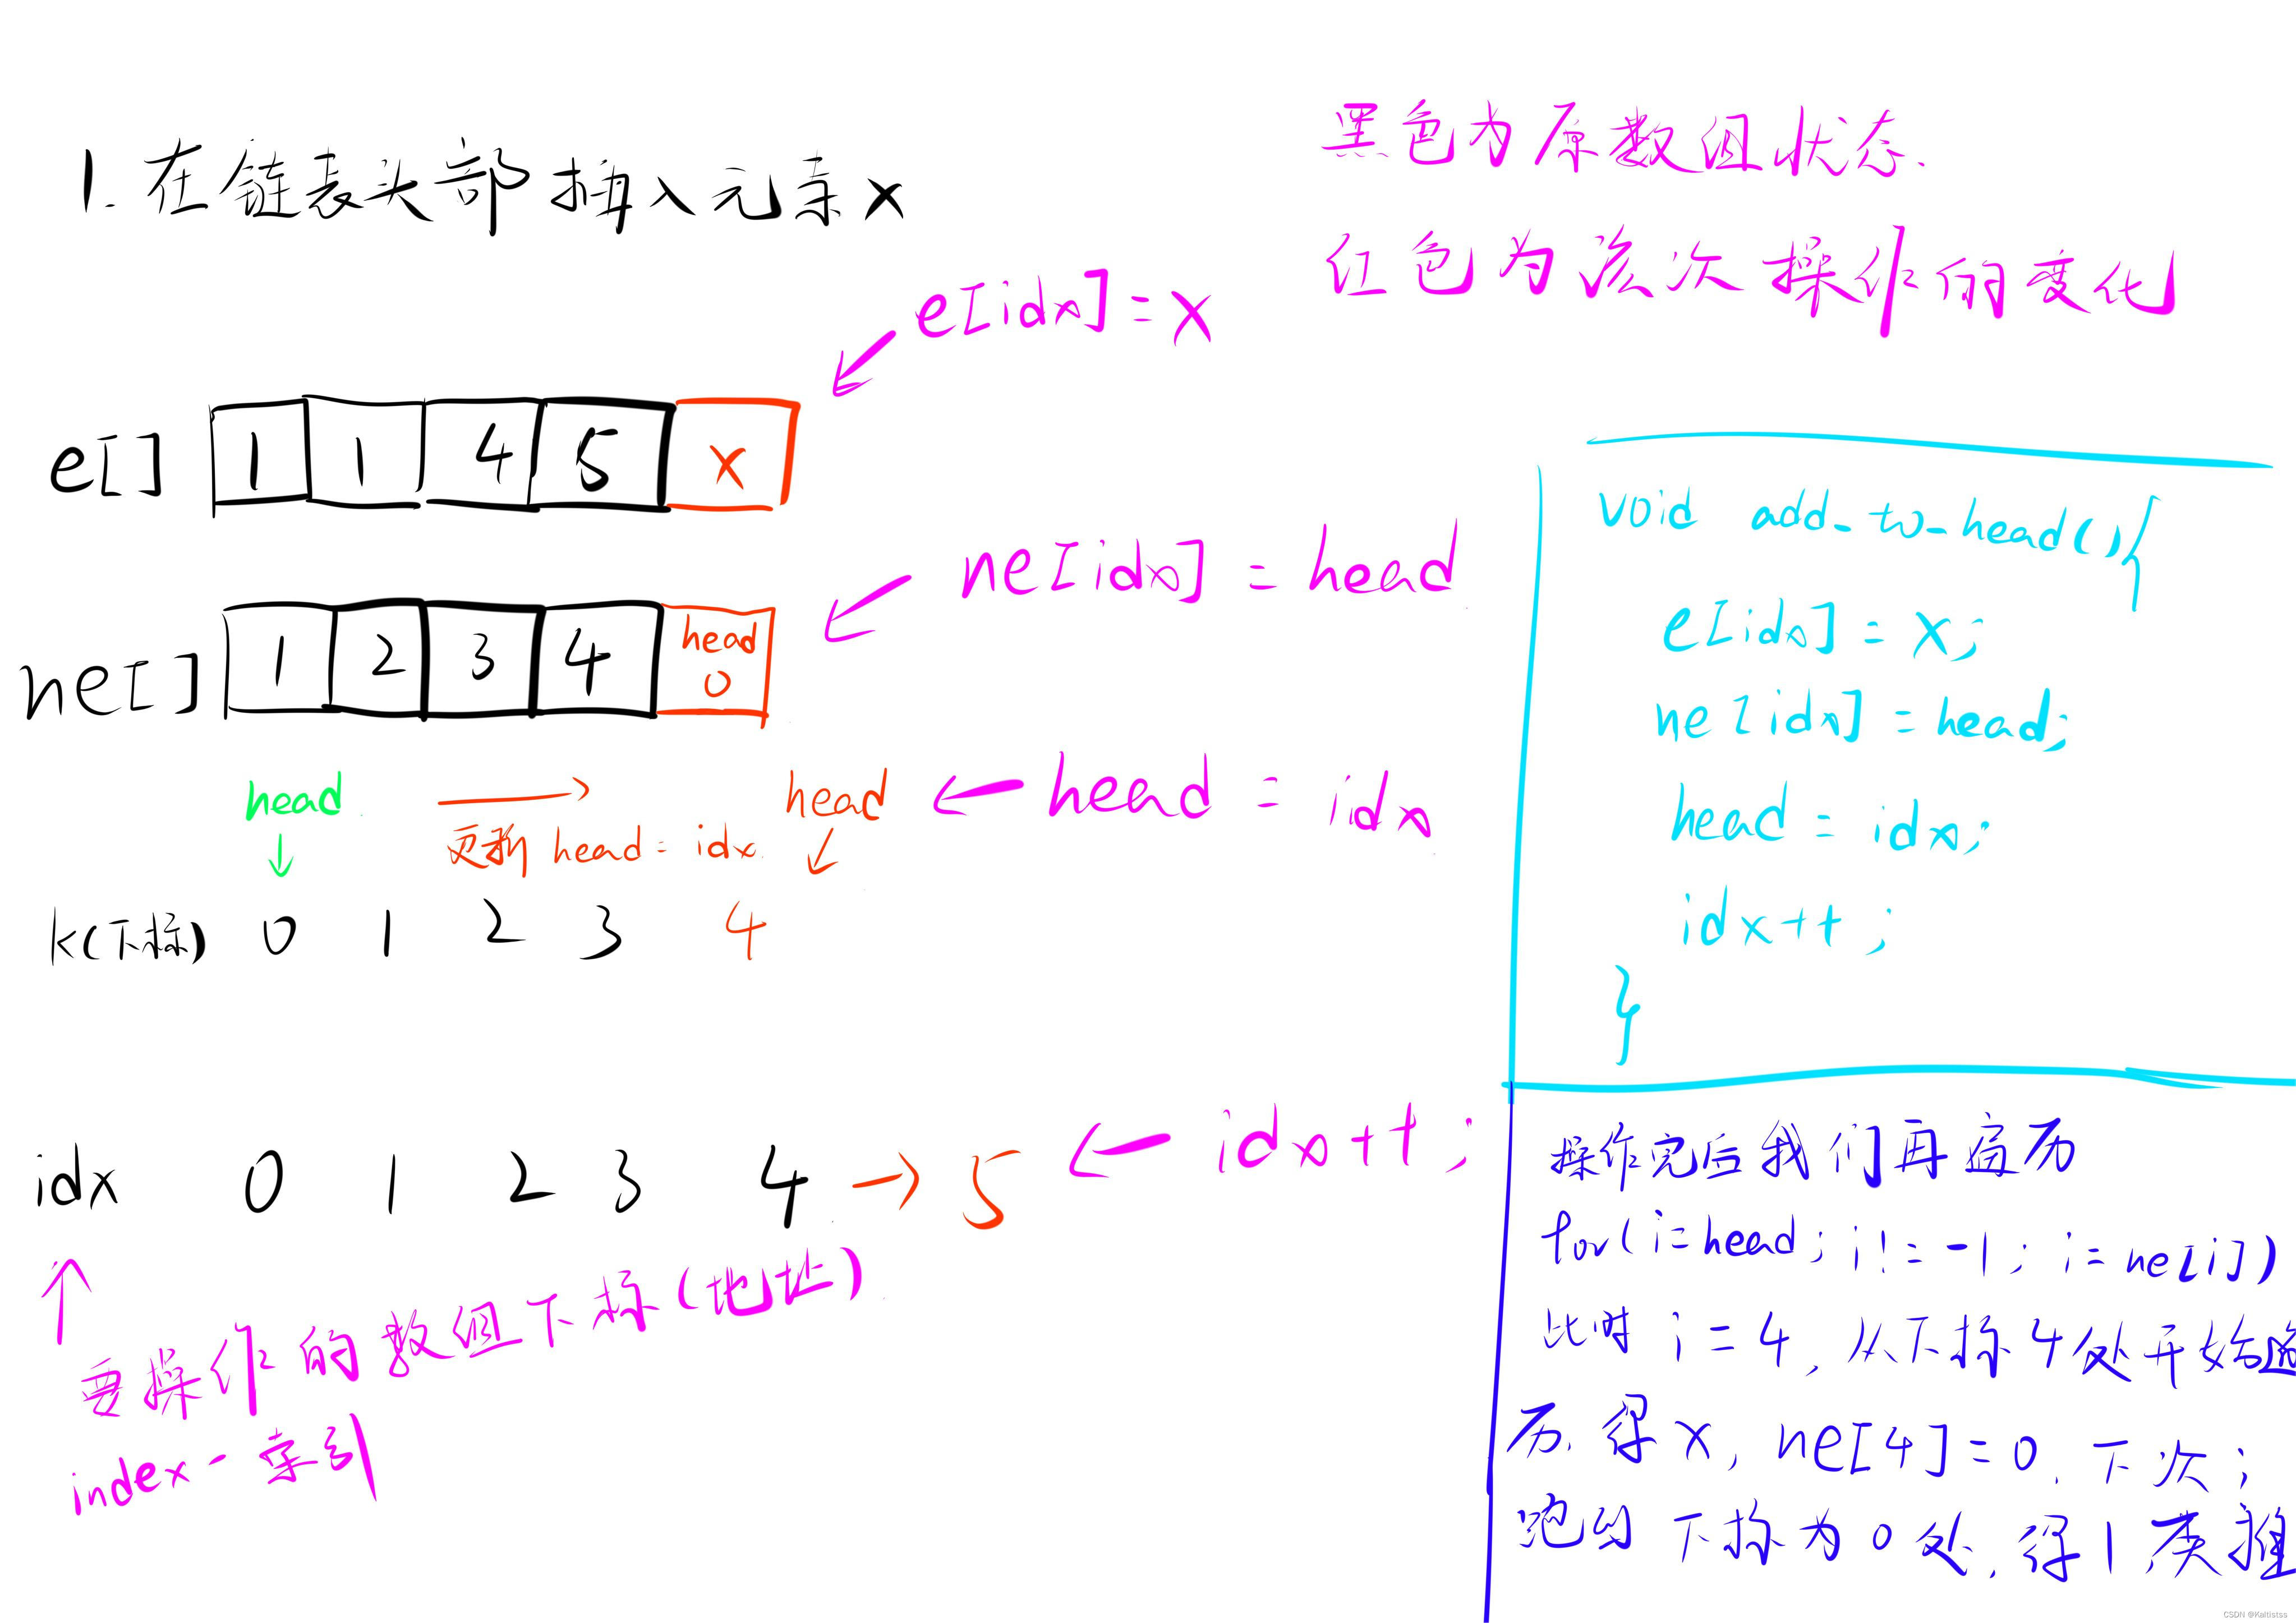 1. 在链表头部插入元素x
黑色为原数组状态.
红色为该次操作的变化
e[idx]=x
e[] 1 1 4 5 x
ne[idx] = head
ne[] 1 2 3 4 head 0
head
更新 head = idx
head
head = idx
k(下标) 0 1 2 3 4
idx 0 1 2 3 4 → 5
idx++;
要操作的数组下标(地址)
index-索引
void add_to_head(){
e[idx] = x;
ne[idx] = head;
head = idx;
idx++;
}
操作完后我们再遍历
for(i=head; i!=-1; i=ne[i])
此时 i=4, 从下标4处开始遍
历. 得x, ne[4]=0. 下次i
跑到下标为0处, 得1 类推
CSDN @Kaltistss